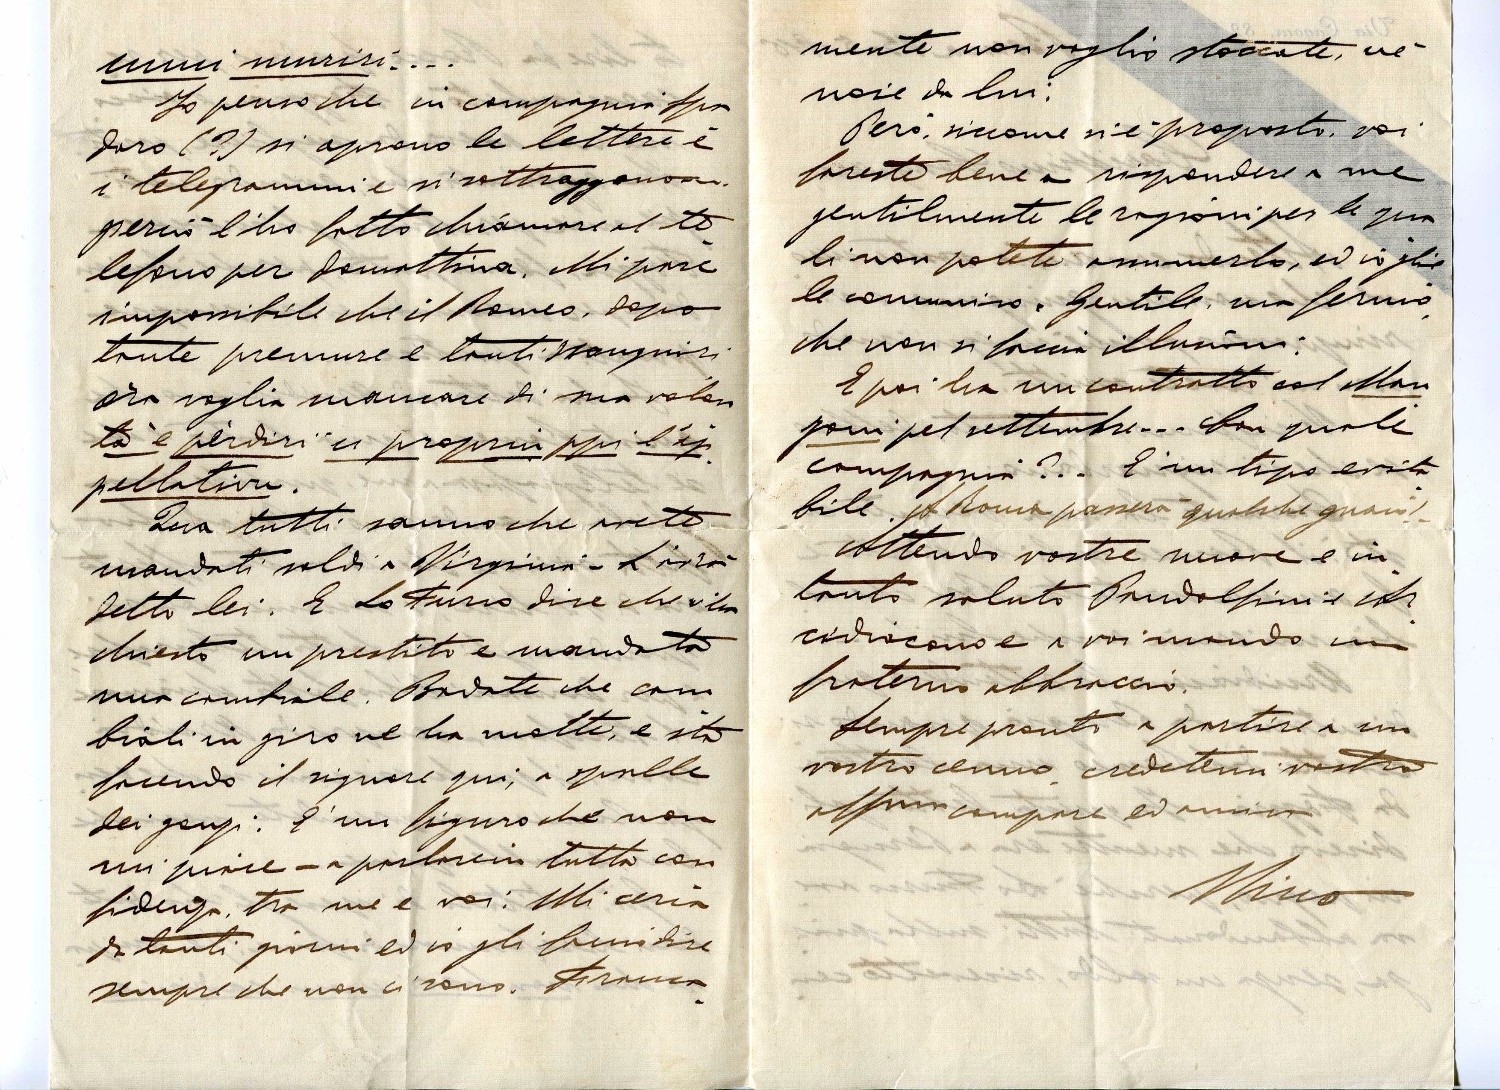 cumi murisi....
Io penso che in compagnia Spa
daro (?) si aprono le lettere e
i telegrammi e si sottraggono
perciò l'ho fatto chiamare al te
lefono per domattina. Mi pare
impossibile che il Romeo, dopo
tante premure e tanti
ora voglia mancare di sua volon
tà e pèrdiri u propriu ppi l'ap
pellativu.
Qua tutti sanno che avete
mandati soldi a Virginia - L'avrà
detto lei. E Lo Turco dice che vi ha
chiesto un prestito e mandata
una cambiale. Badate che cam
biali in giro ne ha molte, e sta
facendo il signore qui, a spalle
dei gonzi. È un figuro che non
mi piace - a parlare in tutta con
fidenza, tra me e voi. Mi cerca
da tanti giorni ed io gli faccio dire
sempre che non ci sono. Franca
mente non voglio stoccate, nè
noie da lui.
Però, siccome si è proposto, voi
fareste bene a rispondere a me
gentilmente le ragioni per le qua
li non potete assumerlo, ed io glie
le comunico. Gentile, ma fermo,
che non si faccia illusioni.
E poi ha un contratto col Man
zoni pel settembre... Con quale
compagnia?... È un tipo evita
bile. A Roma passerà qualche guaio!..
Attendo vostre nuove e in
tanto saluto Pandolfini e
e a voi mando un
fraterno abbraccio.
Sempre pronto a partire a un
vostro cenno, credetemi vostro
aff.mo compare ed amico
Nino